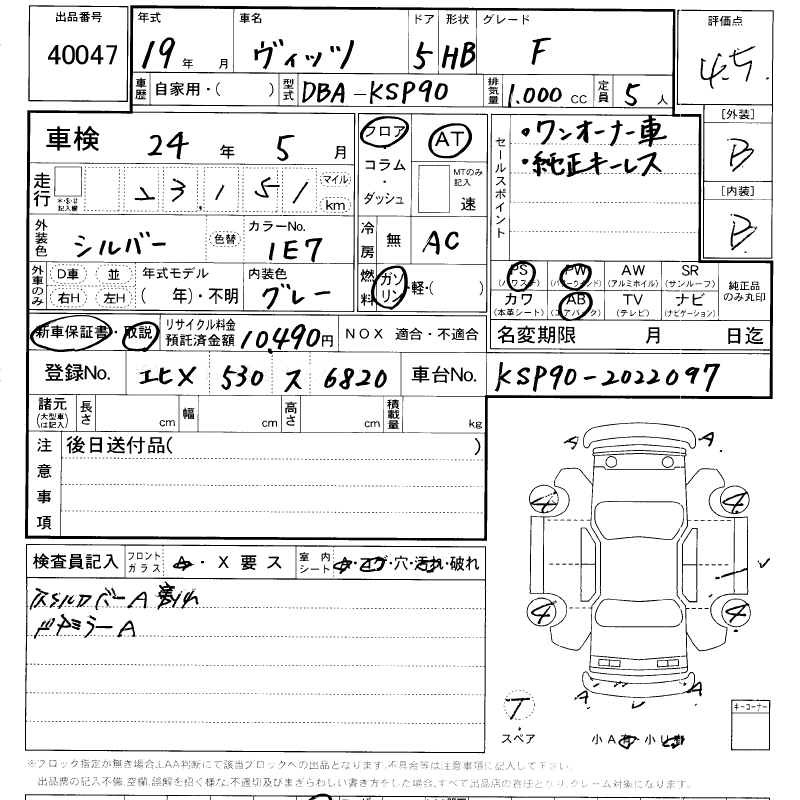 出品番号 年式 車名 ドア 形状 グレード 評価点
40047 19年 月 ヴィッツ 5 HB F 4.5
車歴 自家用・( ) 型式 DBA-KSP90 排気量 1.000 cc 定員 5 人
車検 24年 5月 フロア AT セールスポイント ・ワンオーナー車 [外装]
・純正キーレス B
走行 *・$・# 記入欄 23,151 マイル km コラム・ダッシュ MTのみ記入 速 [内装]
B
外装色 シルバー 色替 カラーNo. 1E7 冷房 無 AC
外車のみ D車 並 年式モデル 内装色 燃料 ガソリン・軽・( ) PS (パワステ) PW (パワーウィンド) AW (アルミホイル) SR (サンルーフ) 純正品のみ丸印
右H 左H ( 年)・不明 グレー カワ (本革シート) AB (エアバック) TV (テレビ) ナビ (ナビゲーション)
新車保証書・取説 リサイクル料金預託済金額 10,490円 NOX 適合・不適合 名変期限 月 日迄
登録No. 530 ス 6820 車台No. KSP90-2022097
諸元 (大型車は記入) 長さ cm 幅 cm 高さ cm 積載量 kg
注意事項 後日送付品( )
A A
4 4
検査員記入 フロントガラス ・X 要 ス 室内シート ・コゲ・穴・汚れ・破れ
A
ドアミラーA
4 4
A A
T
スペア 小A 小 キーコーナー
※ブロック指定が無き場合、LAA判断にて該当ブロックへの出品となります。不具合等は注意事項に記入してください。
出品票の記入不備、空欄、誤解を招く様な、不適切及びまぎらわしい書き方をした場合、すべて出品店の責任となり、クレーム対象になります。